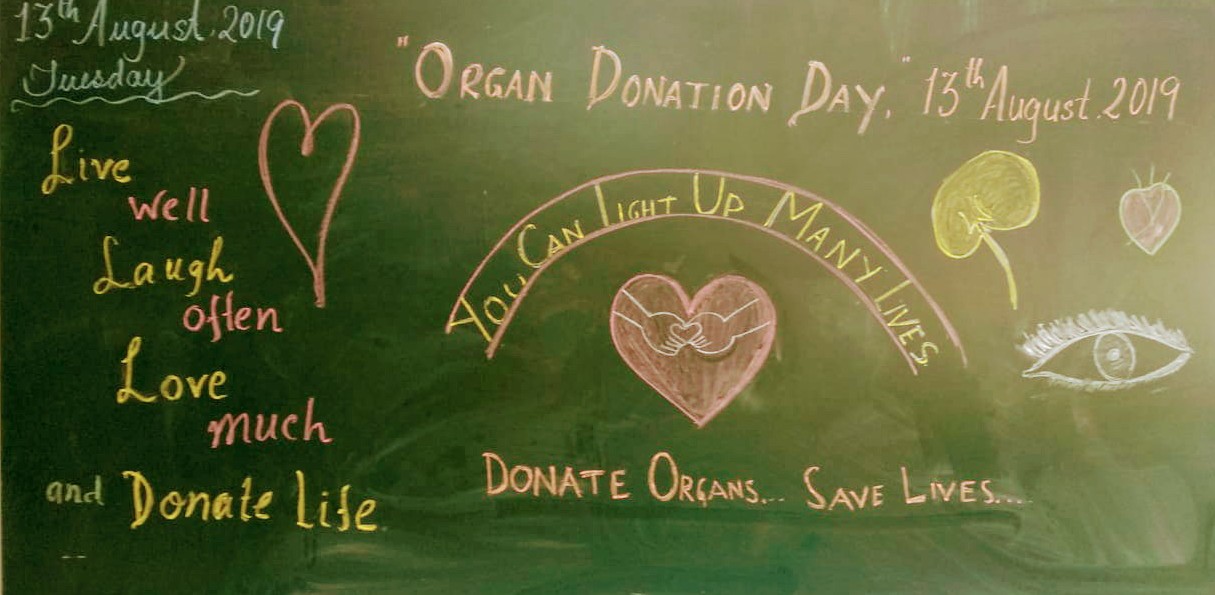 13th August. 2019
Tuesday
Live
well
Laugh
often
Love
much
and Donate Life
"ORGAN DONATION DAY." 13th August. 2019
YOU CAN LIGHT UP MANY LIVES
DONATE ORGANS... SAVE LIVES....